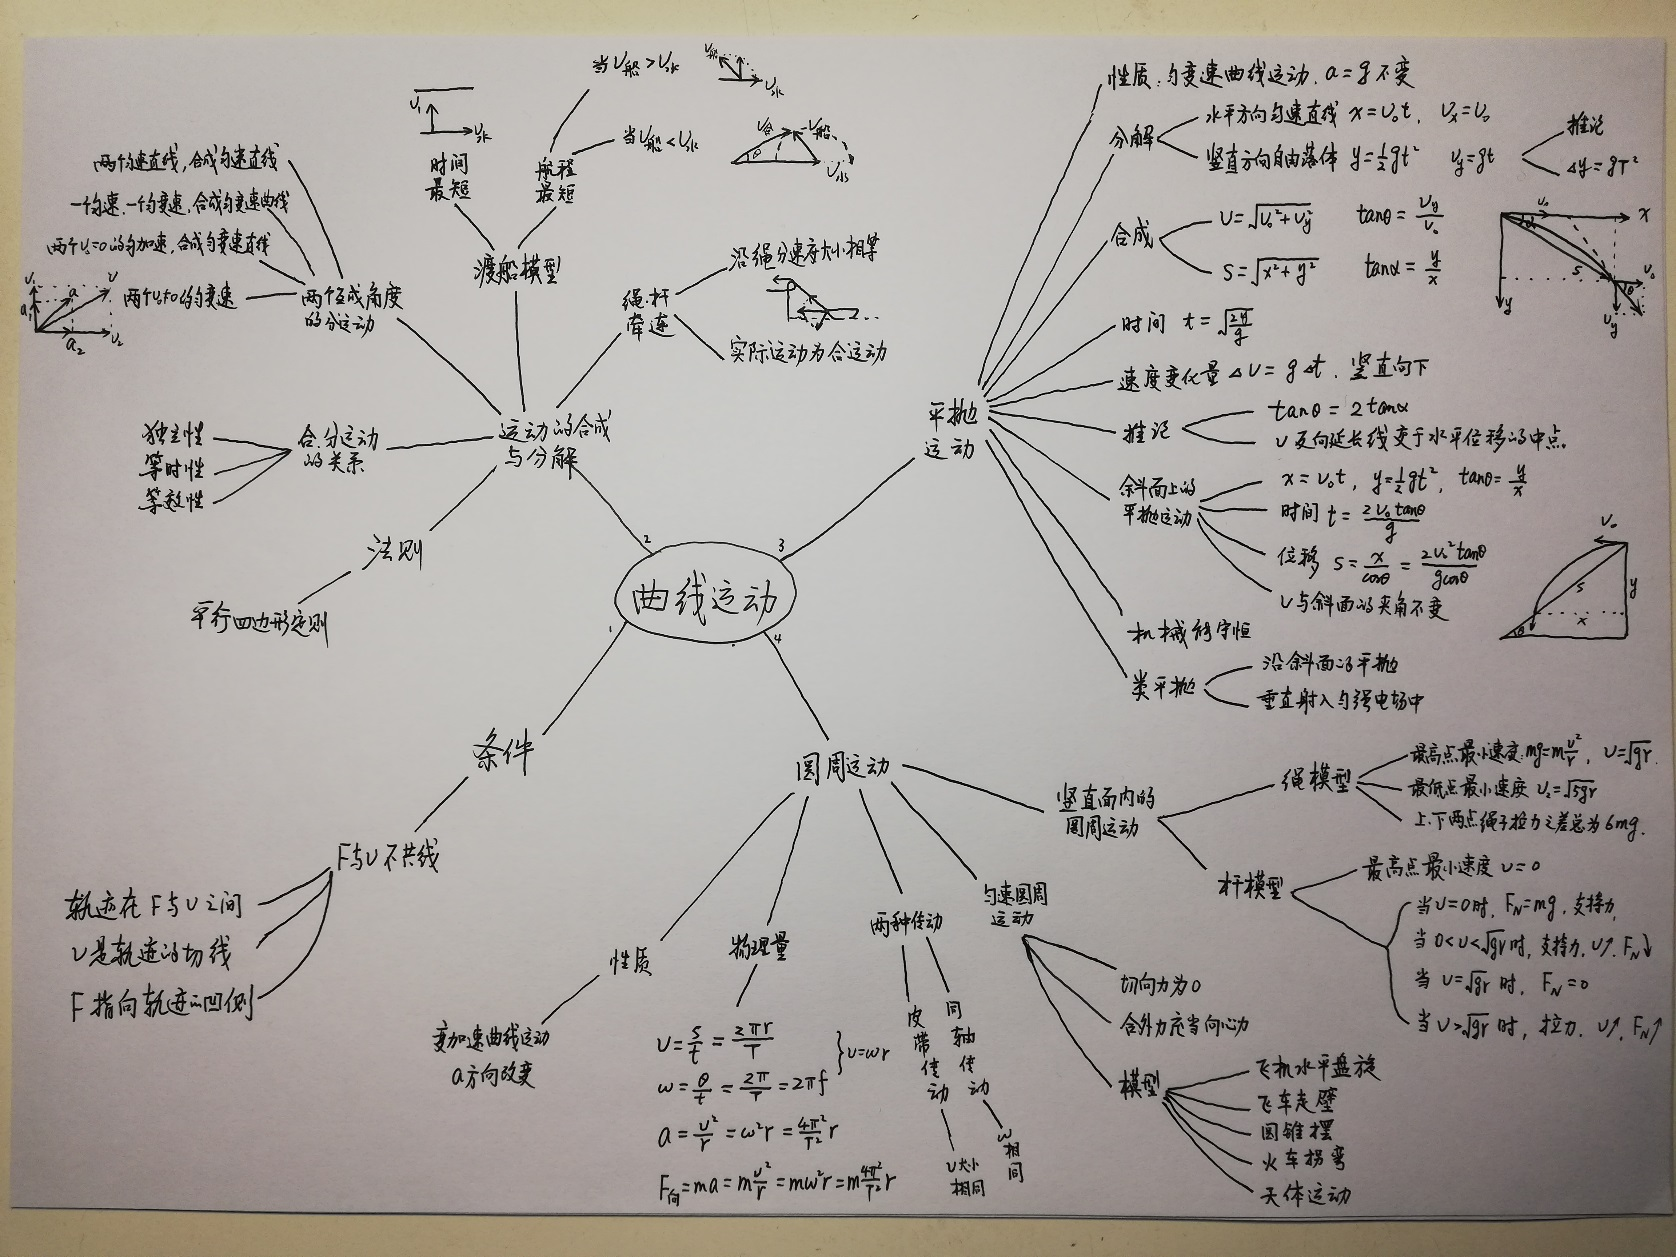 曲线运动
1
条件
F与v不共线
轨迹在F与v之间
v是轨迹的切线
F指向轨迹的凹侧
2
运动的合成
与分解
法则
平行四边形定则
合.分运动
的关系
独立性
等时性
等效性
两个互成角度
的分运动
两个匀速直线,合成匀速直线
一个匀速,一个匀变速,合成匀变速曲线
两个v₀=0的匀加速,合成匀变速直线
两个v₀≠0的匀变速
v₁ v a₁ a a₂ v₂
渡船模型
时间
最短
v₁ v水
航程
最短
当v船>v水
v船 v水
当v船<v水
v合 v船 θ v水
绳.杆
牵连
沿绳分速度大小相等
实际运动为合运动
3
平抛
运动
性质:匀变速曲线运动.a=g不变
分解
水平方向匀速直线 x=v₀t, vₓ=v₀
竖直方向自由落体 y=½gt² v_y=gt
推论
Δy=gT²
合成
v=√(v₀²+v_y²) tanθ=v_y/v₀
s=√(x²+y²) tanα=y/x
v₀ x α s v₀ θ y v_y
时间 t=√(2y/g)
速度变化量 Δv=gΔt.竖直向下
推论
tanθ=2tanα
v反向延长线交于水平位移的中点.
斜面上的
平抛运动
x=v₀t, y=½gt², tanθ=y/x
时间 t=2v₀tanθ/g
位移 s=x/cosθ=2v₀²tanθ/gcosθ
v与斜面的夹角不变
v₀ s y x θ
机械能守恒
类平抛
沿斜面的平抛
垂直射入匀强电场中
4
圆周运动
性质
变加速曲线运动
a方向改变
物理量
v=s/t=2πr/T
ω=θ/t=2π/T=2πf
}v=ωr
a=v²/r=ω²r=4π²/T² r
F向=ma=m v²/r=mω²r=m 4π²/T² r
两种传动
皮带传动
v大小
相同
同轴传动
ω相同
匀速圆周
运动
切向力为0
合外力充当向心力
模型
飞机水平盘旋
飞车走壁
圆锥摆
火车拐弯
天体运动
竖直面内的
圆周运动
绳模型
最高点最小速度:mg=m v²/r, v=√gr.
最低点最小速度 v₂=√5gr
上.下两点绳子拉力之差总为6mg.
杆模型
最高点最小速度 v=0
当v=0时, F_N=mg,支持力,
当0<v<√gr时,支持力,v↑.F_N↓
当 v=√gr 时, F_N=0
当v>√gr时,拉力.v↑.F_N↑